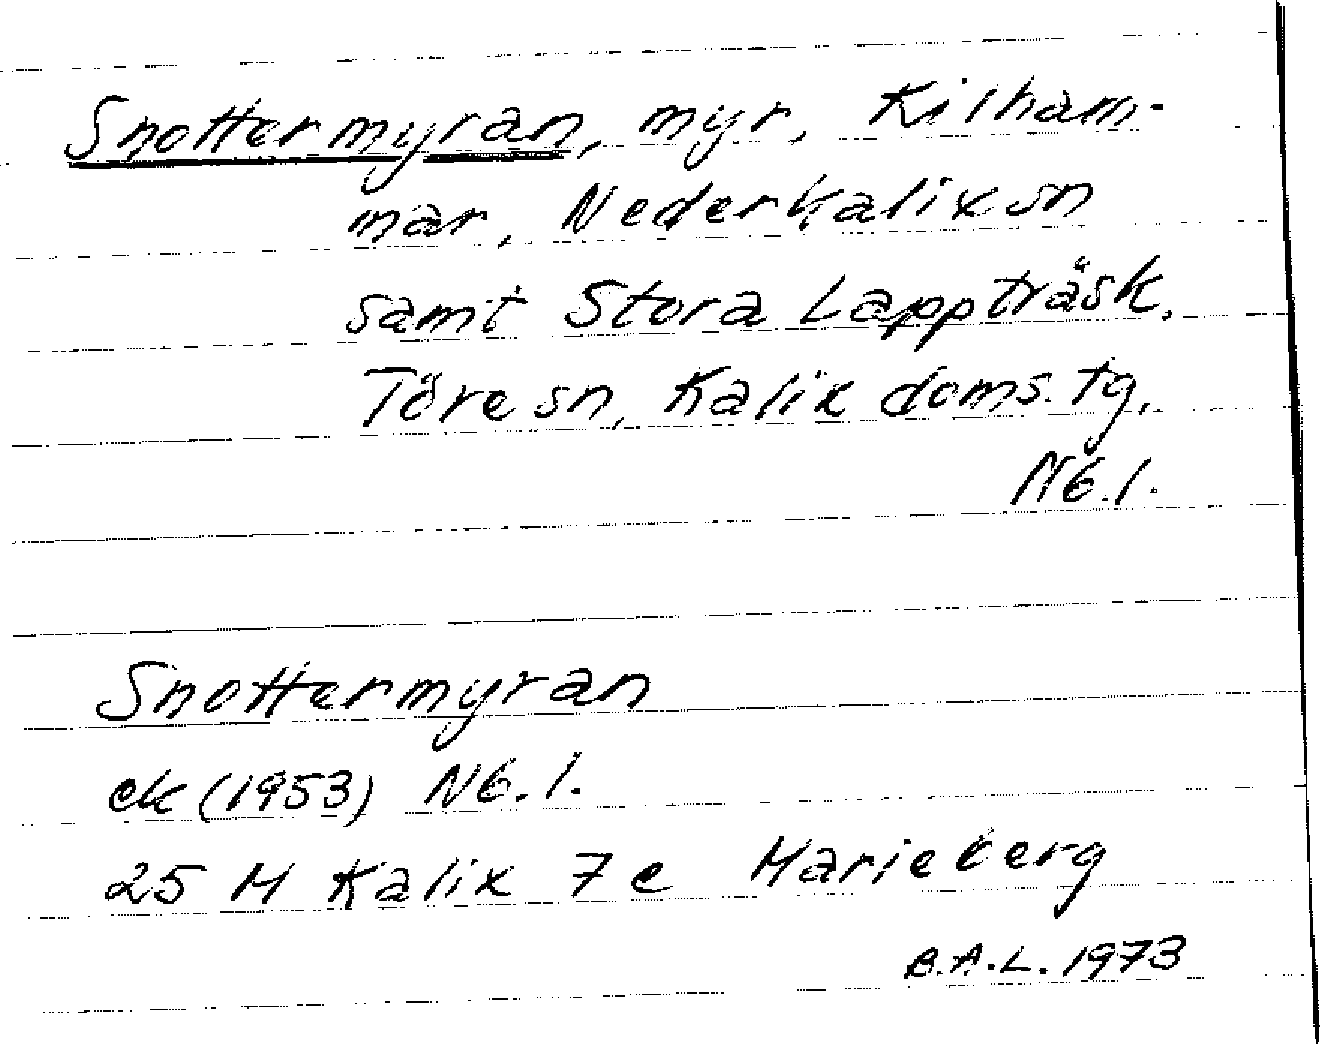 Snottermyran, myr, Kilham-
mar, Nederkalix sn
samt Stora Lappträsk,
Töre sn, Kalix doms. tg,
Nb. l.
Snottermyran
ek (1953) Nb. l.
25 M Kalix 7 e Marieberg
B.A.L. 1973